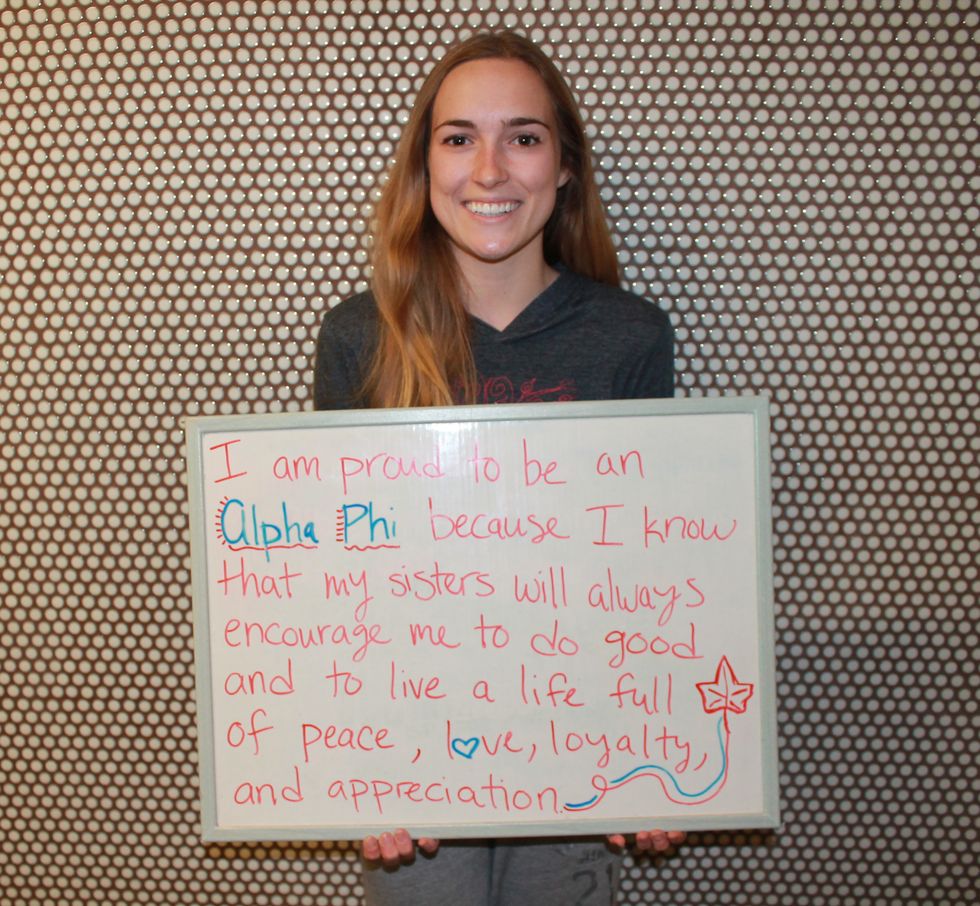 I am proud to be an
Alpha Phi because I know
that my sisters will always
encourage me to do good
and to live a life full
of peace, love, loyalty,
and appreciation.